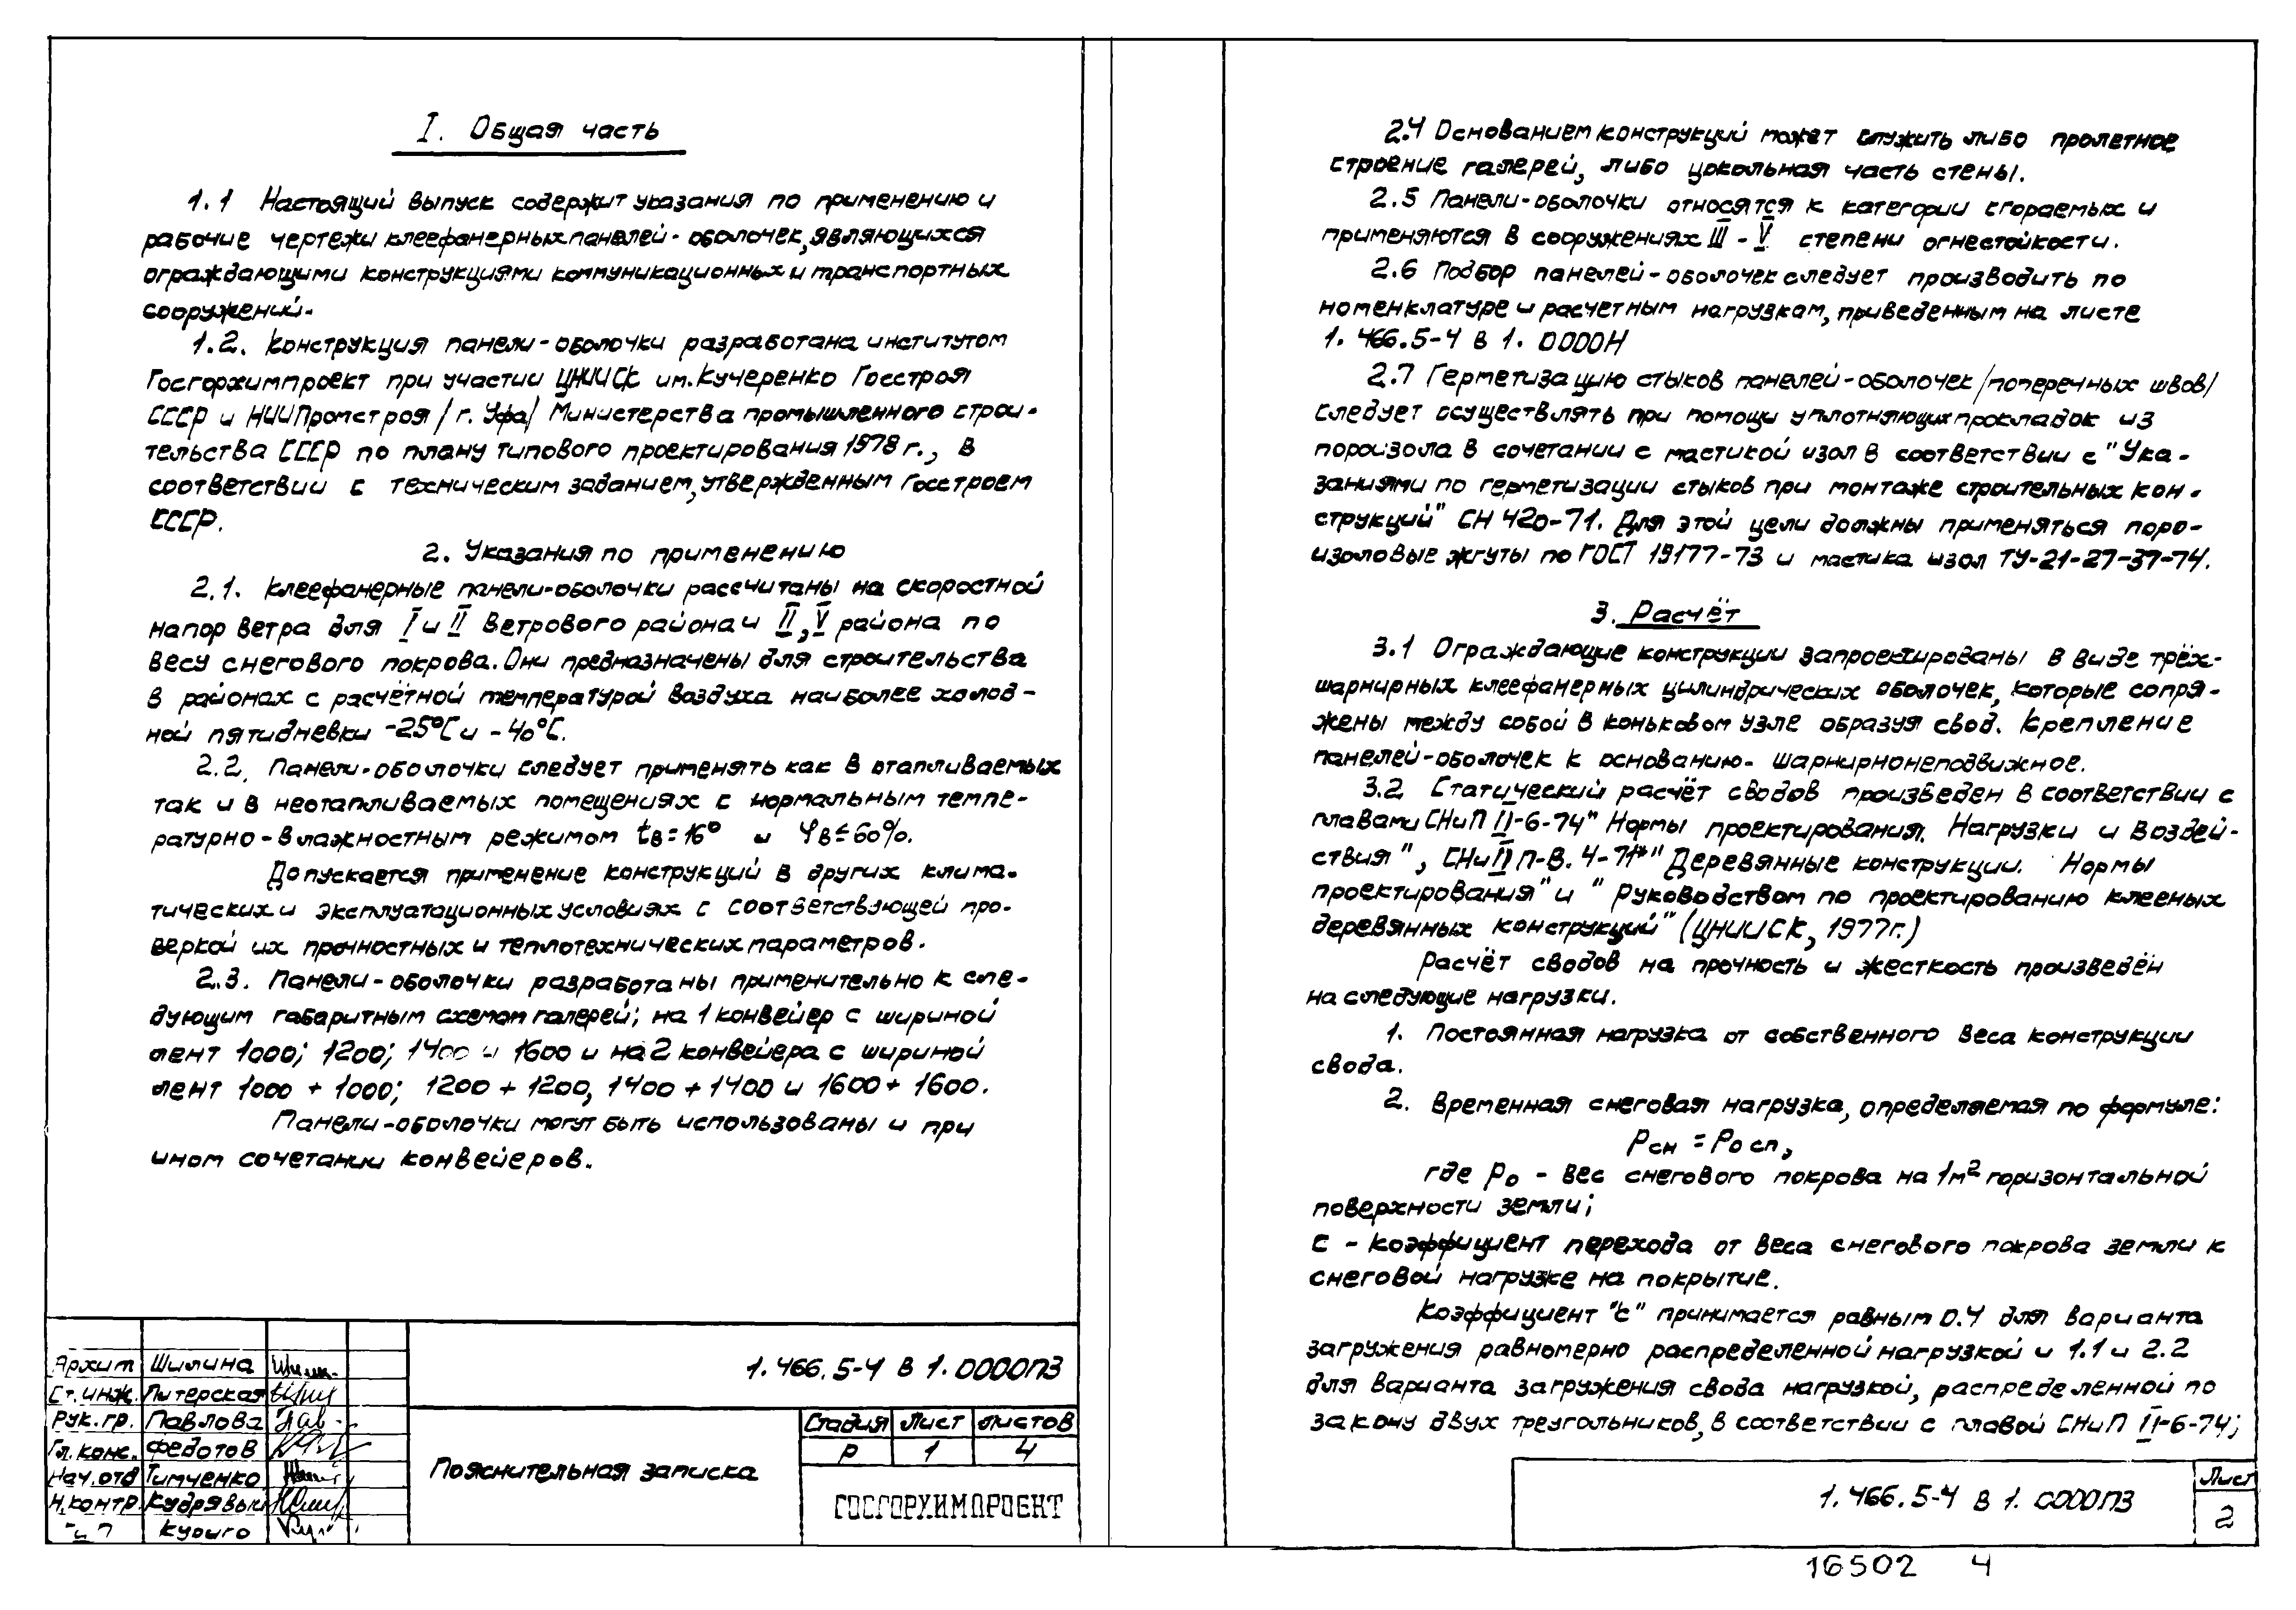 I. Общая часть
1.1 Настоящий выпуск содержит указания по применению и
рабочие чертежи клеефанерных панелей-оболочек, являющихся
ограждающими конструкциями коммуникационных и транспортных
сооружений.
1.2. Конструкция панели-оболочки разработана институтом
Госгорхимпроект при участии ЦНИИСК им. Кучеренко Госстроя
СССР и НИИПромстроя /г. Уфа/ Министерства промышленного строи-
тельства СССР по плану типового проектирования 1978 г., в
соответствии с техническим заданием, утвержденным Госстроем
СССР.
2. Указания по применению
2.1. Клеефанерные панели-оболочки рассчитаны на скоростной
напор ветра для I и II ветрового района и II, V района по
весу снегового покрова. Они предназначены для строительства
в районах с расчётной температурой воздуха наиболее холод-
ной пятидневки -25°С и -40°С.
2.2. Панели-оболочки следует применять как в отапливаемых
так и в неотапливаемых помещениях с нормальным темпе-
ратурно-влажностным режимом tв=16° и φв≤60%.
Допускается применение конструкций в других клима-
тических и эксплуатационных условиях с соответствующей про-
веркой их прочностных и теплотехнических параметров.
2.3. Панели-оболочки разработаны применительно к сле-
дующим габаритным схемам галерей; на 1 конвейер с шириной
лент 1000; 1200; 1400 и 1600 и на 2 конвейера с шириной
лент 1000 + 1000; 1200 + 1200, 1400 + 1400 и 1600 + 1600.
Панели-оболочки могут быть использованы и при
ином сочетании конвейеров.
Архит Шилина
Ст. инж. Питерская
Рук. гр. Павлова
Гл. конс. Федотов
Нач. отд Тимченко
Н. контр.
1.466.5-4 В 1.0000ПЗ
Пояснительная записка
Стадия Лист Листов
Р 1 4
ГОСГОРХИМПРОЕКТ
2.4 Основанием конструкций может служить либо пролетное
строение галерей, либо цокольная часть стены.
2.5 Панели-оболочки относятся к категории сгораемых и
применяются в сооружениях III - V степени огнестойкости.
2.6 Подбор панелей-оболочек следует производить по
номенклатуре и расчетным нагрузкам, приведенным на листе
1.466.5-4 В 1. 0000Н
2.7 Герметизацию стыков панелей-оболочек /поперечных швов/
следует осуществлять при помощи уплотняющих прокладок из
пороизола в сочетании с мастикой изол в соответствии с "Ука-
заниями по герметизации стыков при монтаже строительных кон-
струкций" СН 420-71. Для этой цели должны применяться поро-
изоловые жгуты по ГОСТ 19177-73 и мастика изол ТУ-21-27-37-74.
3. Расчёт
3.1 Ограждающие конструкции запроектированы в виде трёх-
шарнирных клеефанерных цилиндрических оболочек, которые сопря-
жены между собой в коньковом узле образуя свод. Крепление
панелей-оболочек к основанию- шарнирнонеподвижное.
3.2 Статический расчёт сводов произведен в соответствии с
главами СНиП II-6-74 "Нормы проектирования. Нагрузки и воздей-
ствия", СНиП II-В. 4-71* "Деревянные конструкции. Нормы
проектирования" и "Руководством по проектированию клееных
деревянных конструкций" (ЦНИИСК, 1977г.)
Расчёт сводов на прочность и жесткость произведён
на следующие нагрузки.
1. Постоянная нагрузка от собственного веса конструкции
свода.
2. Временная снеговая нагрузка, определяемая по формуле:
Рсн = Ро сп,
где Ро - вес снегового покрова на 1м² горизонтальной
поверхности земли;
с - коэффициент перехода от веса снегового покрова земли к
снеговой нагрузке на покрытие.
Коэффициент "с" принимается равным 0.4 для варианта
загружения равномерно распределенной нагрузкой и 1.1 и 2.2
для варианта загружения свода нагрузкой, распределенной по
закону двух треугольников, в соответствии с главой СНиП II-6-74;
1.466.5-4 В 1. 0000ПЗ
Лист
2
16502 4